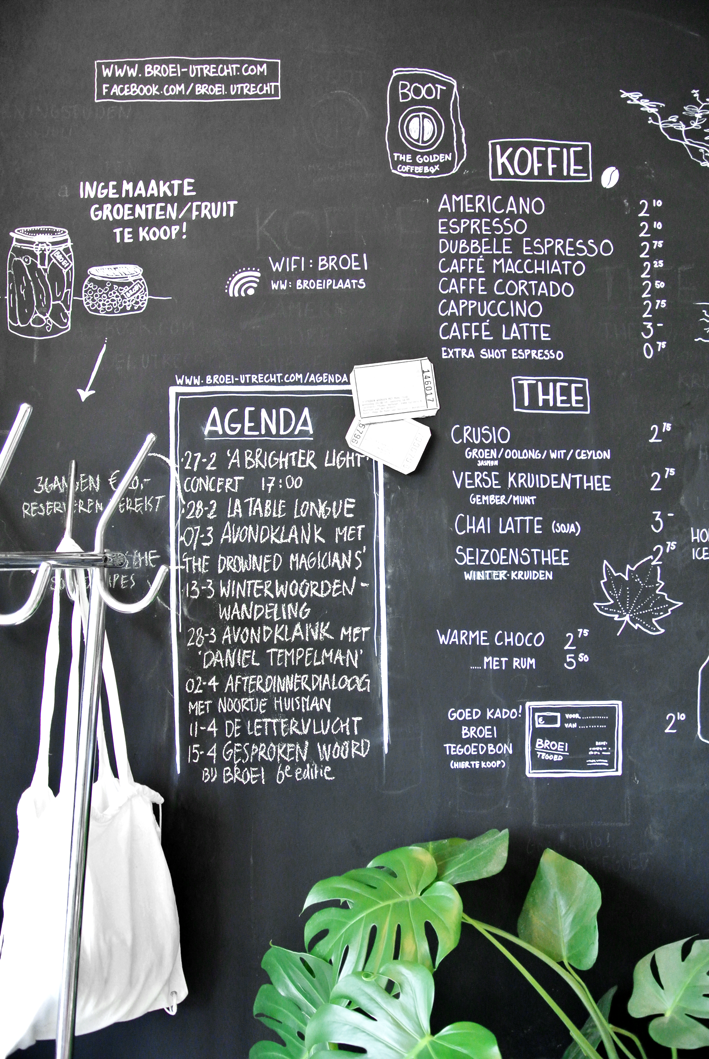 WWW.BROEI-UTRECHT.COM
FACEBOOK.COM/BROEI.UTRECHT
BOOT
THE GOLDEN
COFFEEBOX
INGEMAAKTE
GROENTEN/FRUIT
TE KOOP!
BROEI
WIFI: BROEI
WW: BROEIPLAATS
KOFFIE
AMERICANO 2 10
ESPRESSO 2 10
DUBBELE ESPRESSO 2 75
CAFFÉ MACCHIATO 2 25
CAFFÉ CORTADO 2 50
CAPPUCCINO 2 75
CAFFÉ LATTE 3 -
EXTRA SHOT ESPRESSO 0 75
WWW.BROEI-UTRECHT.COM/AGENDA
146017
AGENDA
27-2 'A BRIGHTER LIGHT'
CONCERT 17:00
28-2 LA TABLE LONGUE
07-3 AVONDKLANK MET
'THE DROWNED MAGICIANS'
13-3 WINTERWOORDEN-
WANDELING
28-3 AVONDKLANK MET
'DANIEL TEMPELMAN'
02-4 AFTERDINNERDIALOOG
MET NOORTJE HUISMAN
11-4 DE LETTERVLUCHT
15-4 GESPROKEN WOORD
BIJ BROEI 6e editie
3GANGEN
RESERVEREN VEREIST
THEE
CRUSIO 2 75
GROEN/OOLONG/WIT/CEYLON
JASMIJN
VERSE KRUIDENTHEE 2 75
GEMBER/MUNT
CHAI LATTE (SOJA) 3 -
SEIZOENSTHEE 2 75
WINTER-KRUIDEN
HO
ICE
WARME CHOCO 2 75
....MET RUM 5 50
GOED KADO!
BROEI
TEGOEDBON
(HIER TE KOOP)
€ VOOR
VAN
BROEI
TEGOED
2 10